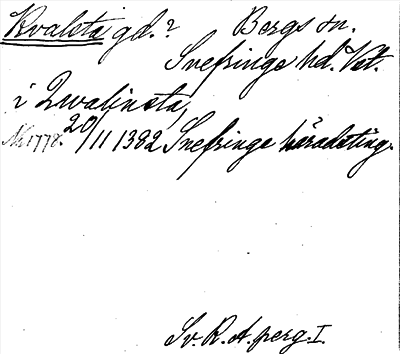 Kvalsta gd.? Bergs sn.
Snefringe hd. Vstm.
i Qwalinsta,
Nr 1778. 20/11 1382 Snefringe häradsting.
Sv. R. A. perg. I.